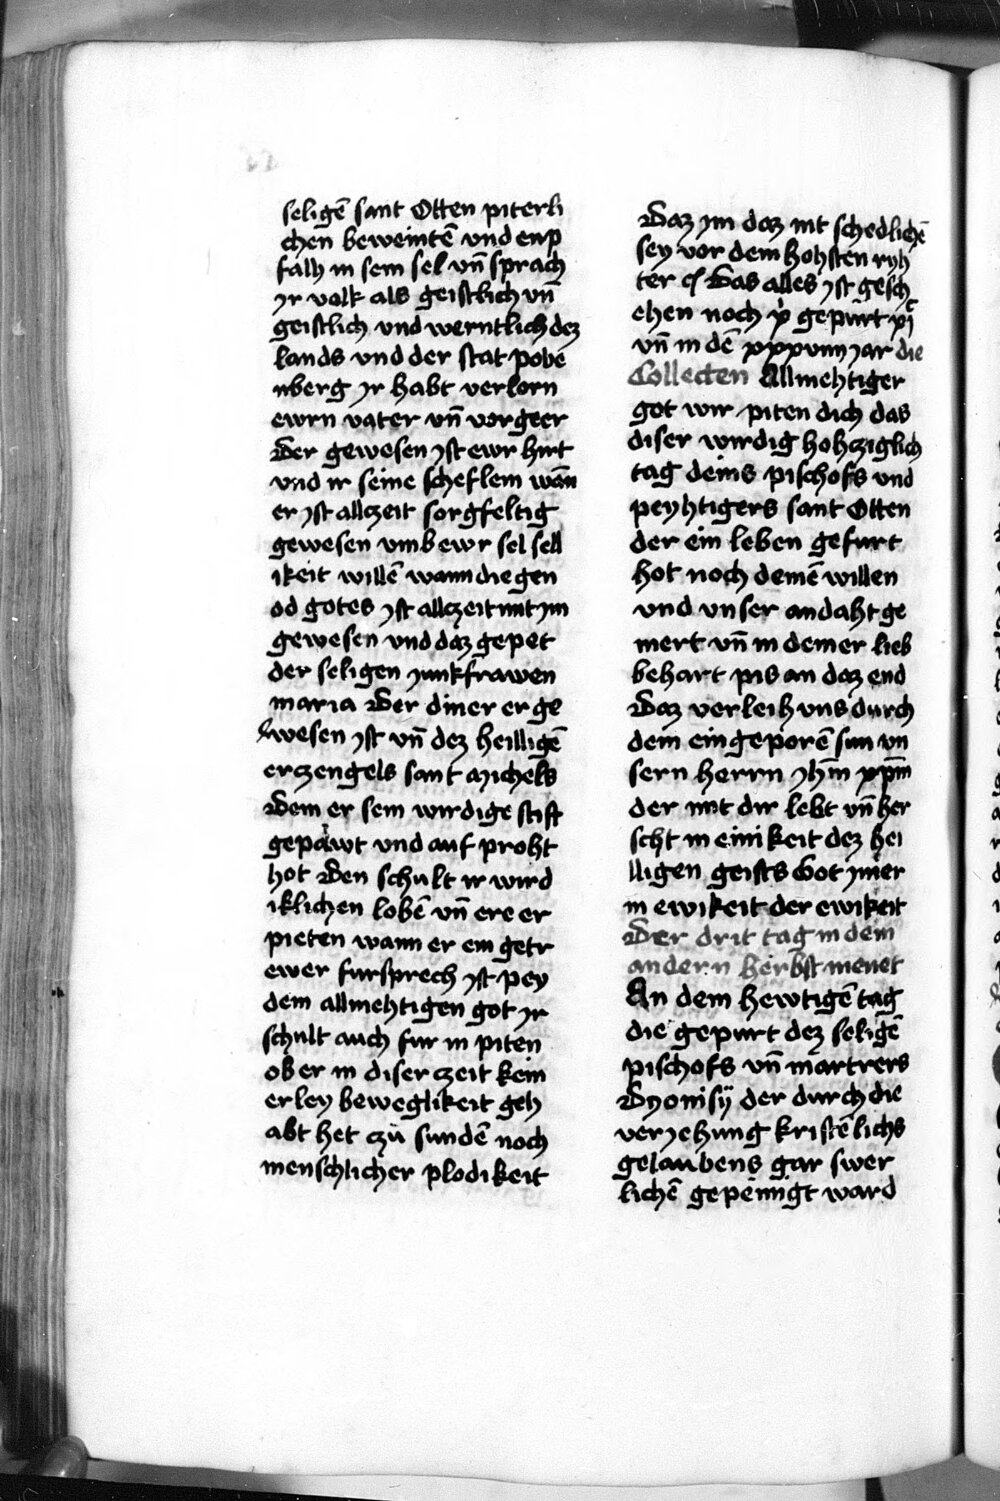 seligē sant Otten piterli
chen beweintē vnd enp
falh in sein sel vn̄ sprach
yr volk als geistlich vn̄
geistlich vnd werntlich dez
lands vnd der stat pobe
nberg yr habt verlorn
ewrn vater vn̄ vorgeer
Der gewesen yst ewr hirt
vnd ir seine scheflein wān
er yst allczeit sorgfeltig
gewesen vmb ewr sel sell
ikeit willē wann die gen
od gotes yst allczeit mit ym
gewesen vnd daz gepet
der seligen yunkfrawen
maria Der diner er ge
wesen yst vn̄ dez heilligē
erczengels sant Michels
Dem er sein wirdige stift
gepawt vnd auf proht
hot Den schult ir wird
iklichen lobē vn̄ ere er
pieten wann er ein getr
ewer fursprech yst pey
dem allmehtigen got yr
schult auch fur in piten
ob er in diser czeit kein
erley beweglikeit geh
abt het czu sundē noch
menschlicher plodikeit
Daz ym daz nit schedlichē
sey vor dem hohsten ryh
ter Das alles yst gesch
ehen noch gepurt
vn̄ in dē xxxviiii yar die
Collecten Allmehtiger
got wir piten dich das
diser wirdig hohcziglich
tag deins pischofs vnd
peyhtigers sant Otten
der ein leben gefurt
hot noch deinē willen
vnd vnser andaht ge
mert vn̄ in deiner lieb
behart pis an daz end
Daz verleih vns durch
dein eingeporē sun vn
sern herrn yhm̄ xpm̄
der mit dir lebt vn̄ her
scht in einikeit dez hei
lligen geists Got ymer
in ewikeit der ewikeit
Der drit tag in dem
andern herbst menet
An dem hewtigē tag
die gepurt dez seligē
pischofs vn̄ martrers
Dyonisÿ der durch die
veryehung kristēlichs
gelaubens gar swer
lichē gepeinigt ward